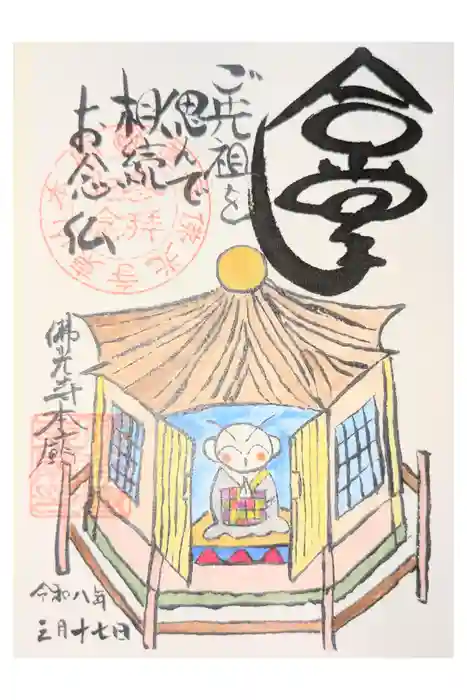 合掌
ご先祖を
偲んで
相続
お念仏
佛光寺本廟
令和八年
三月十七日